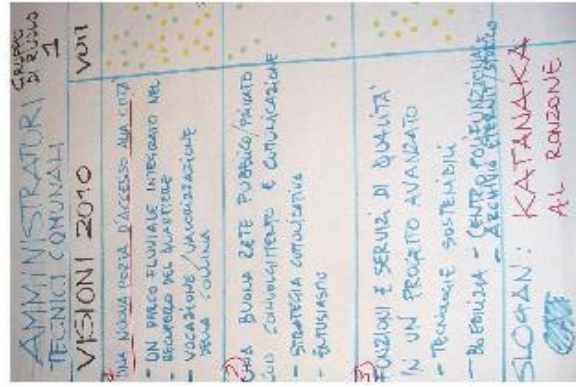 AMMINISTRATORI
TECNICI COMUNALI
GRUPPO
DI RUOLO
1
VISIONI 2010
VOTI
1)
UNA NUOVA PORTA D'ACCESSO ALLA CITTÀ
- UN PARCO FLUVIALE INTEGRATO NEL
RECUPERO DEL QUARTIERE
- VOCAZIONE / VALORIZZAZIONE
DELLA COLLINA
2)
UNA BUONA RETE PUBBLICO/PRIVATO
CON COINVOLGIMENTO E COMUNICAZIONE
- STRATEGIA COMUNICATIVA
- ENTUSIASMO
3)
FUNZIONI E SERVIZI DI QUALITÀ
IN UN PROGETTO AVANZATO
- TECNOLOGIE SOSTENIBILI
- BIOEDILIZIA - CENTRO POLIFUNZIONALE
- ARCHIVIO ETERNIT/STORICO
SLOGAN: KATANAKA
AL RONZONE